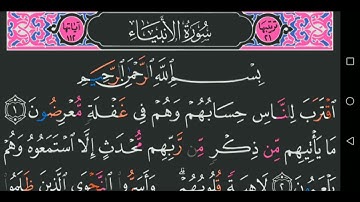 ترتيبها ٢١ سُورَةُ الأَنْبِيَاء آياتها ١١٢
بِسْمِ اللَّهِ الرَّحْمَٰنِ الرَّحِيمِ
ٱقْتَرَبَ لِلنَّاسِ حِسَابُهُمْ وَهُمْ فِى غَفْلَةٍ مُّعْرِضُونَ ١
مَا يَأْتِيهِم مِّن ذِكْرٍ مِّن رَّبِّهِم مُّحْدَثٍ إِلَّا ٱسْتَمَعُوهُ وَهُمْ
يَلْعَبُونَ ٢ لَاهِيَةً قُلُوبُهُمْ وَأَسَرُّوا۟ ٱلنَّجْوَى ٱلَّذِينَ ظَلَمُوا۟